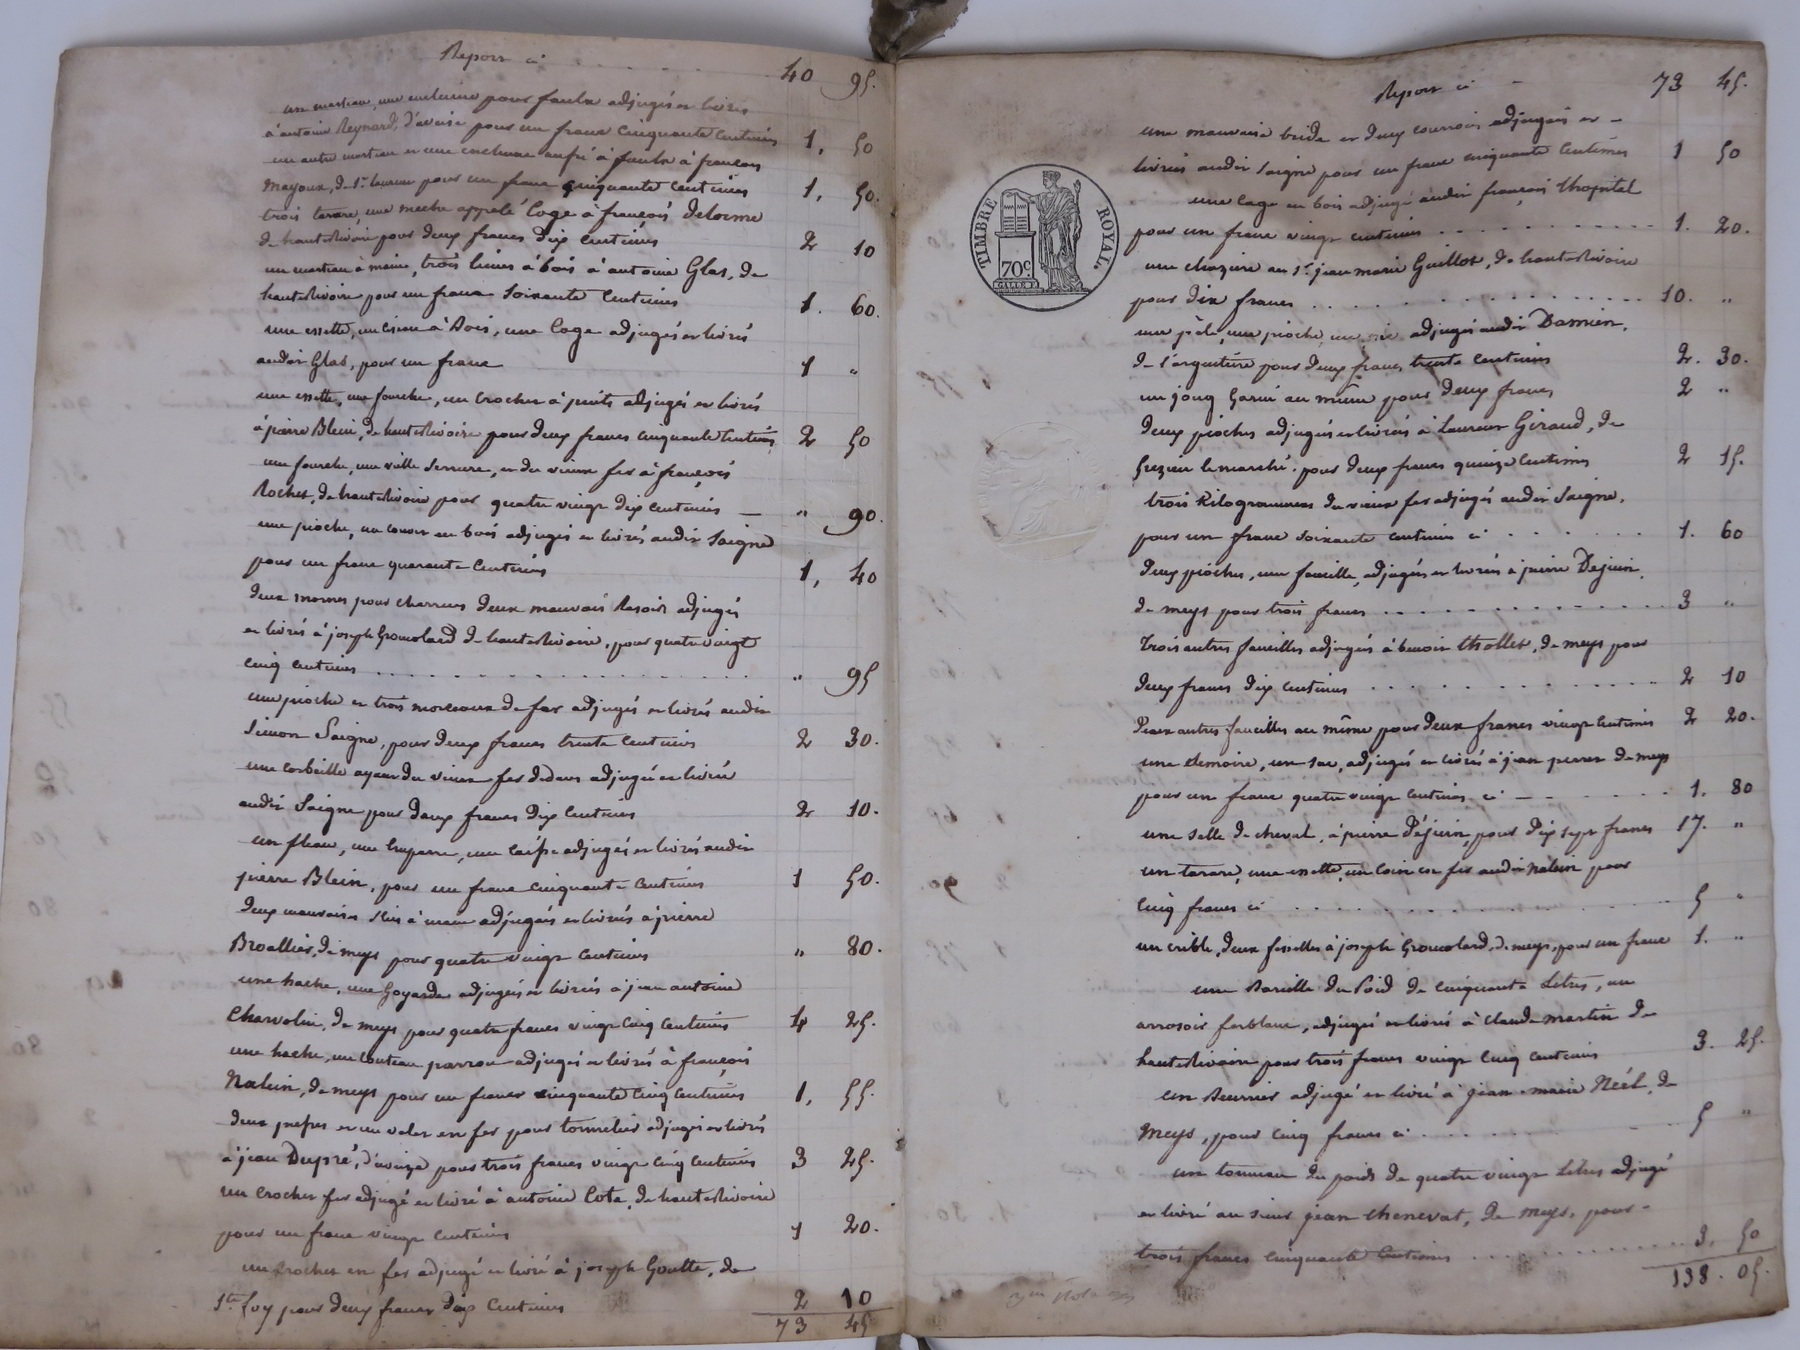 Report ci . . . . . . 40 95.
un marteau, une enclume pour faulx adjugés et livrés
à antoine Reynard, d'aveise pour un franc cinquante centimes 1, 50
un autre marteau et une enclume aussi à faulx à françois
Mayoux, de St laurent pour un franc cinquante centimes 1, 50.
trois tarare, une meche appelé loge à françois Delorme
de hauterivoire pour deux francs dix centimes 2 10
un marteau à main, trois limes à bois à antoine Glas, de
hauterivoire pour un franc soixante centimes 1. 60.
une essette, un ciseau à bois, une loge adjugés et livrés
audit Glas, pour un franc 1 "
une essette, une fourche, un crochet à puits adjugés et livrés
à pierre Blein, de hauterivoire pour deux francs cinquante centimes 2 50
une fourche, une vielle serrure, et du vieux fer à françois
Rochet, de hauterivoire pour quatre vingt dix centimes — " 90.
une pioche, un couvert en bois adjugés et livrés audit Saigne
pour un franc quarante centimes 1, 40
deux mornes pour charrues deux mauvais rasoirs adjugés
et livrés à joseph Gromolard de hauterivoire, pour quatre vingt
cinq centimes . . . . . . . . . . " 95
une pioche et trois morceaux de fer adjugés et livrés audit
Simon Saigne, pour deux francs trente centimes 2 30.
une corbeille ayant du vieux fer dedans adjugée et livrée
audit Saigne pour deux francs dix centimes 2 10.
un fleau, une, une caisse adjugés et livrés audit
pierre Blein, pour un franc cinquante centimes 1 50.
deux mauvaises scies à main adjugées et livrés à pierre
Broallier, de meys pour quatre vingt centimes " 80.
une hache, une Goyarde adjugées et livrés à jean antoine
Charvolin, de meys pour quatre francs vingt cinq centimes 4 25.
une hache, un couteau adjugés et livrés à françois
Nalein, de meys pour un franc cinquante cinq centimes 1, 55.
deux et un en fer pour tonnelier adjugés et livrés
à jean Dupré, d'aveize pour trois francs vingt cinq centimes 3 25.
un crochet fer adjugé et livré à antoine Cote, de hauterivoire
pour un franc vingt centimes 1 20.
un crochet en fer adjugé et livré à joseph Goutte, de
Ste foy pour deux francs dix centimes 2 10
73 45
Report ci — 73 45.
une mauvaise bride et deux courroies adjugées et –
livrées audit Saigne pour un franc cinquante centimes 1 50
une cage en bois adjugée audit françois thopital
pour un franc vingt centimes . . . . . . . . 1. 20.
une chazière au Sr jean marie Guillot, de hauterivoire
pour dix francs . . . . . . . . . . . 10. "
TIMBRE ROYAL.
70c
une pèle, une pioche, un adjugés audit Damien,
de l'argentière pour deux francs trente centimes 2. 30.
un joug Garni au même pour deux francs 2 "
deux pioches adjugés et livrés à Laurent Giraud, de
Grezieu le marché. pour deux francs quinze centimes 2 15.
trois Kilogrammes du vieux fer adjugés audit Saigne,
pour un franc soixante centimes ci . . . . . . 1. 60
deux pioches, une faucille, adjugés et livrés à pierre Dejuin,
de meys pour trois francs . . . . . . . . . 3 "
trois autres faucilles adjugées à benoit thollet, de meys pour
deux francs dix centimes . . . . . . . . . 2 10
Deux autres faucilles au même pour deux francs vingt centimes 2 20.
une, un sac, adjugés et livrés à jean de meys
pour un franc quatre vingt centimes ci — . . . . . 1. 80
une selle de cheval, à pierre Déjuin, pour dix sept francs 17. "
un tarare, une essette, un coin en fer audit Nalein pour
cinq francs ci . . . . . . . . . . . 5 "
un crible, deux à joseph Gromolard, de meys, pour un franc 1. "
une Barielle du Poid de cinquante Litres, un
arrosoir ferblanc, adjugés et livrés à Claude martin de
hauterivoire pour trois francs vingt cinq centimes 3. 25.
un Beurrier adjugé et livré à jean-marie Néel, de
Meys, pour cinq francs ci . . . . . . . 5 "
un tonneau du poids de quatre vingt Litres adjugé
et livré au sieur jean chenevat, de meys, pour –
trois francs cinquante centimes . . . . . . . 3. 50
138. 05.